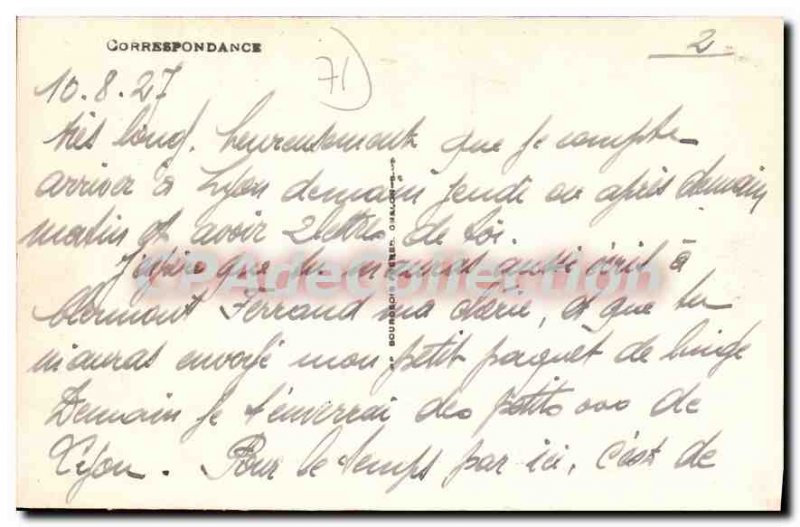 CORRESPONDANCE
71
2
10.8.27
très long. heureusement que je compte
arriver à Lyon demain jeudi ou après demain
matin et avoir 2 lettres de toi.
J'espère que tu m'auras aussi écrit à
Clermont Ferrand ma chérie, et que tu
m'auras envoyé mon petit paquet de linge
Demain je t'enverrai des petits ooo de
Lyon. Pour le temps par ici, c'est de
CPAdeCollection